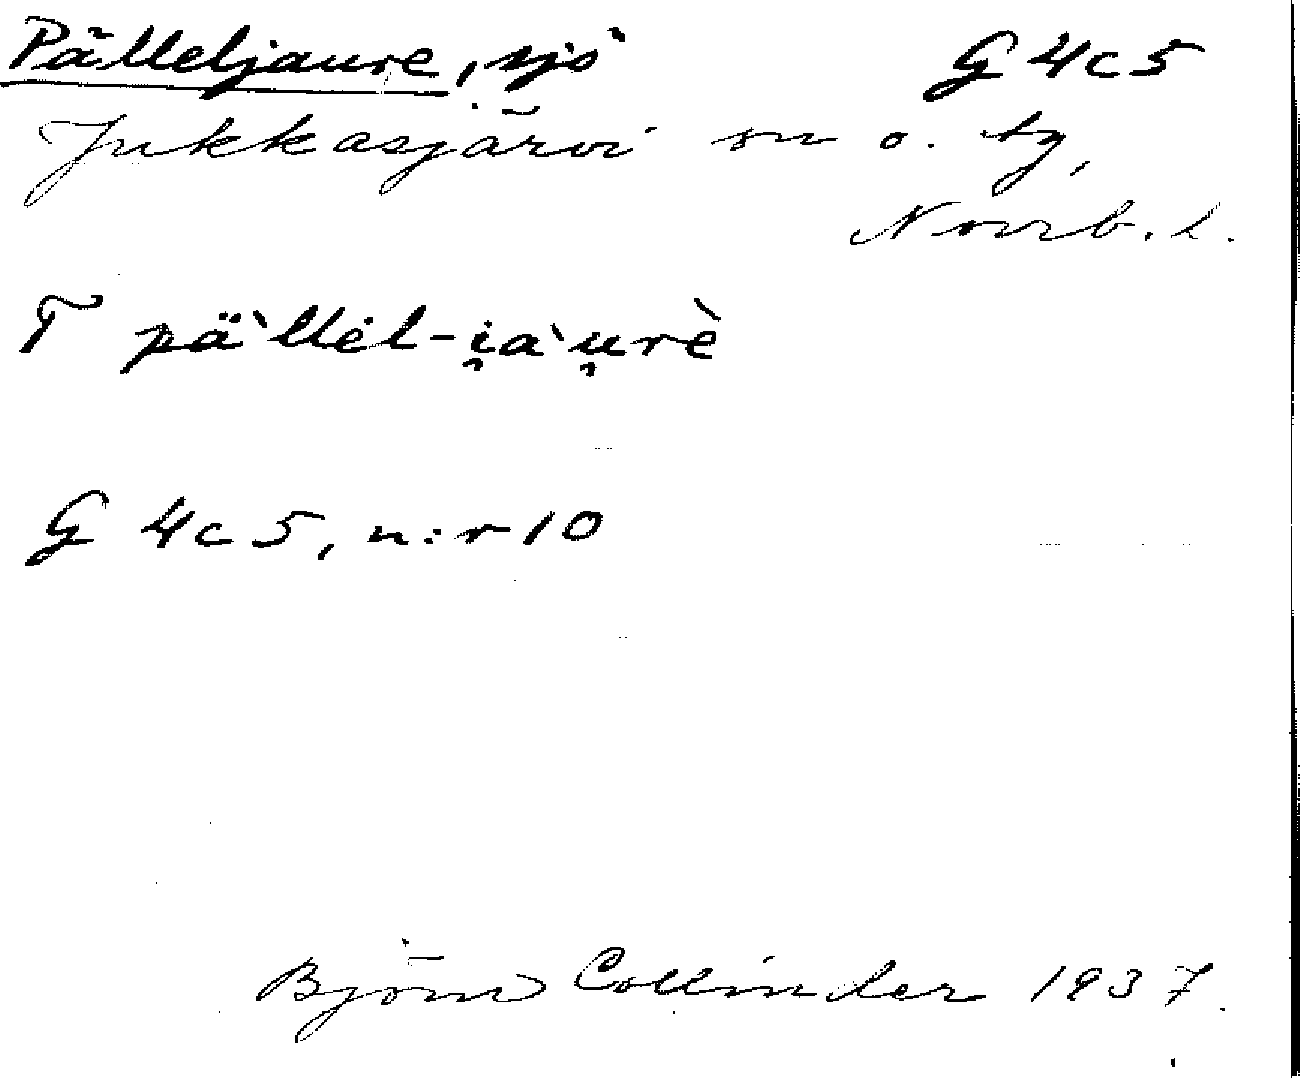 Pälleljaure, sjö G 4c5
Jukkasjärvi sn o. tg,
Norrb. l.
T pä`llėl-i̯a`u̯rè
G 4c5, n:r 10
Björn Collinder 1937